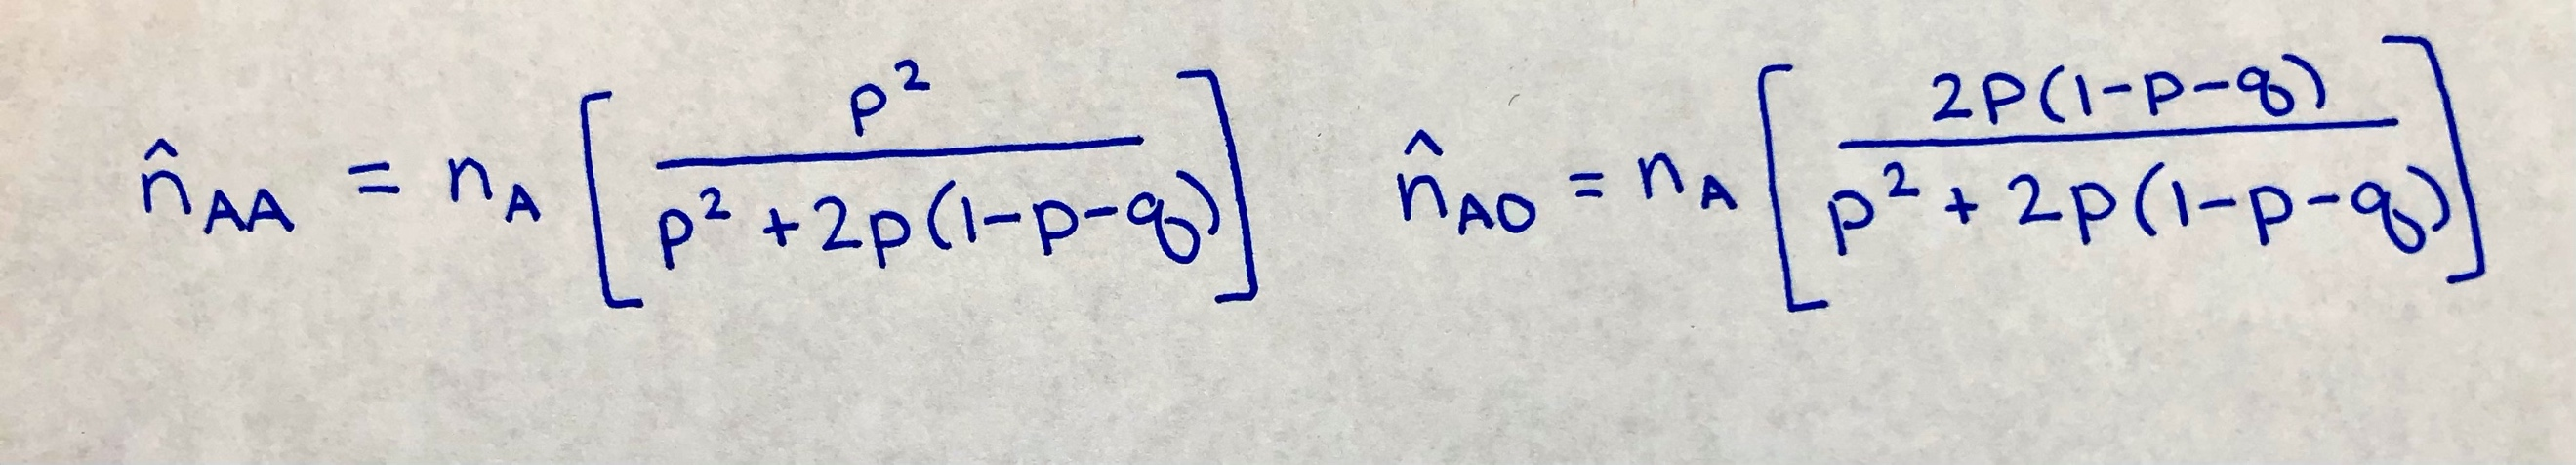 $\hat{n}_{AA} = n_A \left[ \frac{p^2}{p^2 + 2p(1-p-q)} \right] \quad \hat{n}_{AO} = n_A \left[ \frac{2p(1-p-q)}{p^2 + 2p(1-p-q)} \right]$